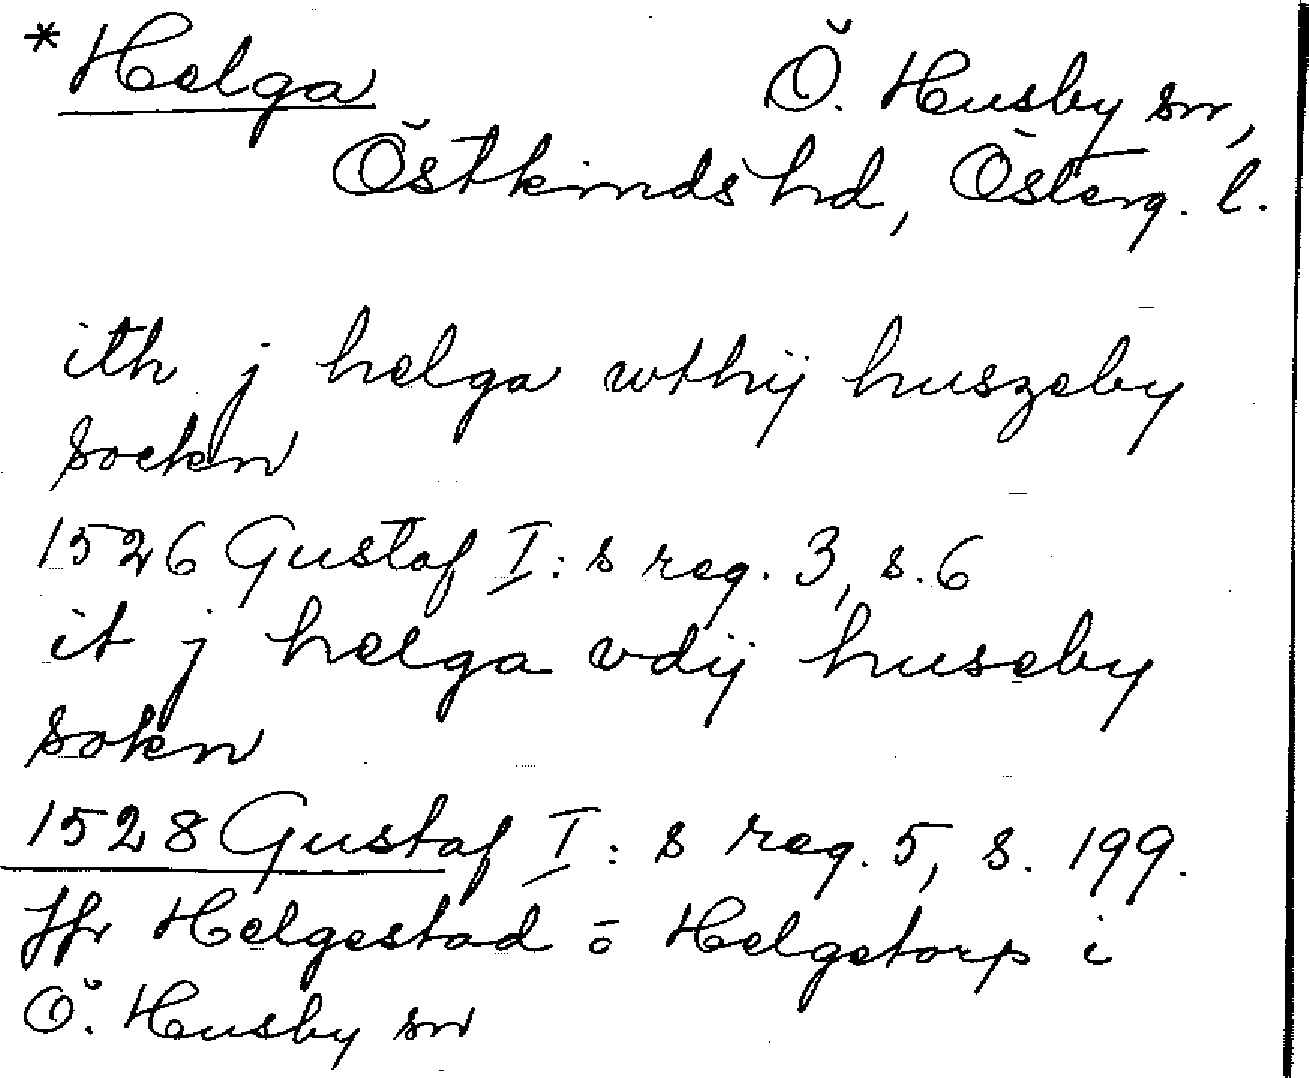 *Helga Ö. Husby sn,
Östkinds hd, Österg. l.
ith j helga wthij huszeby
sockn
1526 Gustaf I:s reg. 3, s. 6
it j helga vdij huseby
sokn
1528 Gustaf I:s reg. 5, s. 199.
Jfr Helgestad o Helgetorp i
Ö. Husby sn